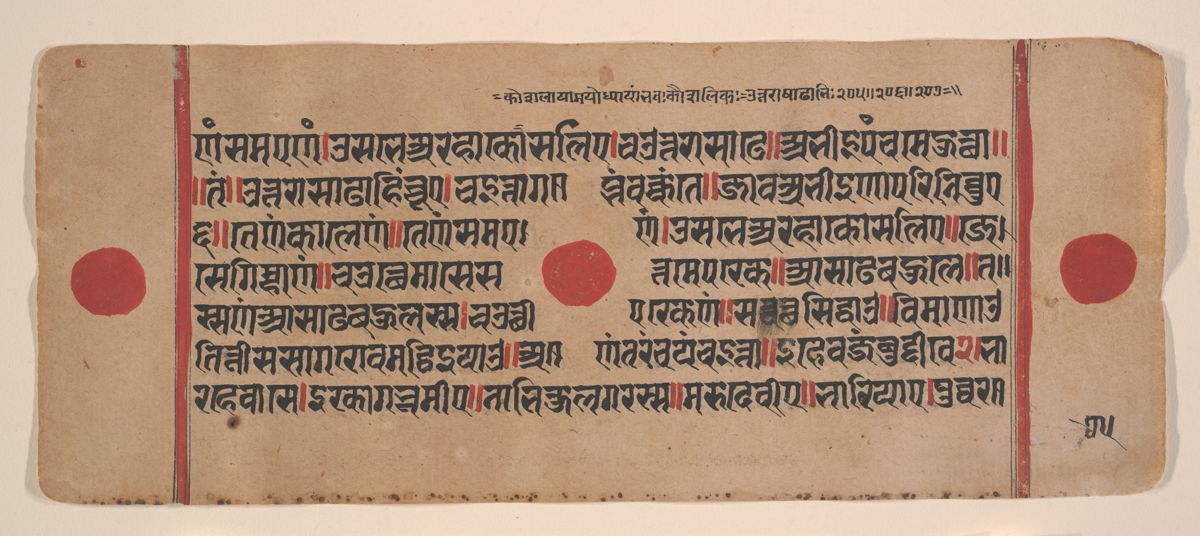 =कौशलायामयोध्यायां भवः कौशलिकः =उत्तराषाढाभिः २०५॥२०६॥२०७=॥
णं समएणं।उसभेअरहाकोसलिए।चउउत्तरासाढे॥अभीइपंचमेहुत्था॥
॥तं॥उत्तरासाढाहिंचुए।चइत्ताग॥ ब्भंवक्कंते॥जावअभीइणापरिनिव्वुए
तेणंकालेणं॥तेणंसमए। णं।उसभेअरहाकोसलिए॥जे।
सेगिम्हाणं॥चउत्थेमासेस त्तमेपरके॥आसाढबहुले॥त॥
स्सणंआसाढबहुलस्स।चउत्थी परकेणं॥सव्वट्ठसिद्धाउ॥विमाणाउ
तित्तीससागरोवमट्ठिइयाउ॥अ॥ णंतरंचयंचइत्ता॥इहेवजंबुद्दीवे२भा
रहेवासे।इरकागभूमीए॥नाभिकुलगरस्स॥मरुदेवीए॥भारियाए।पुव्वरत्ता